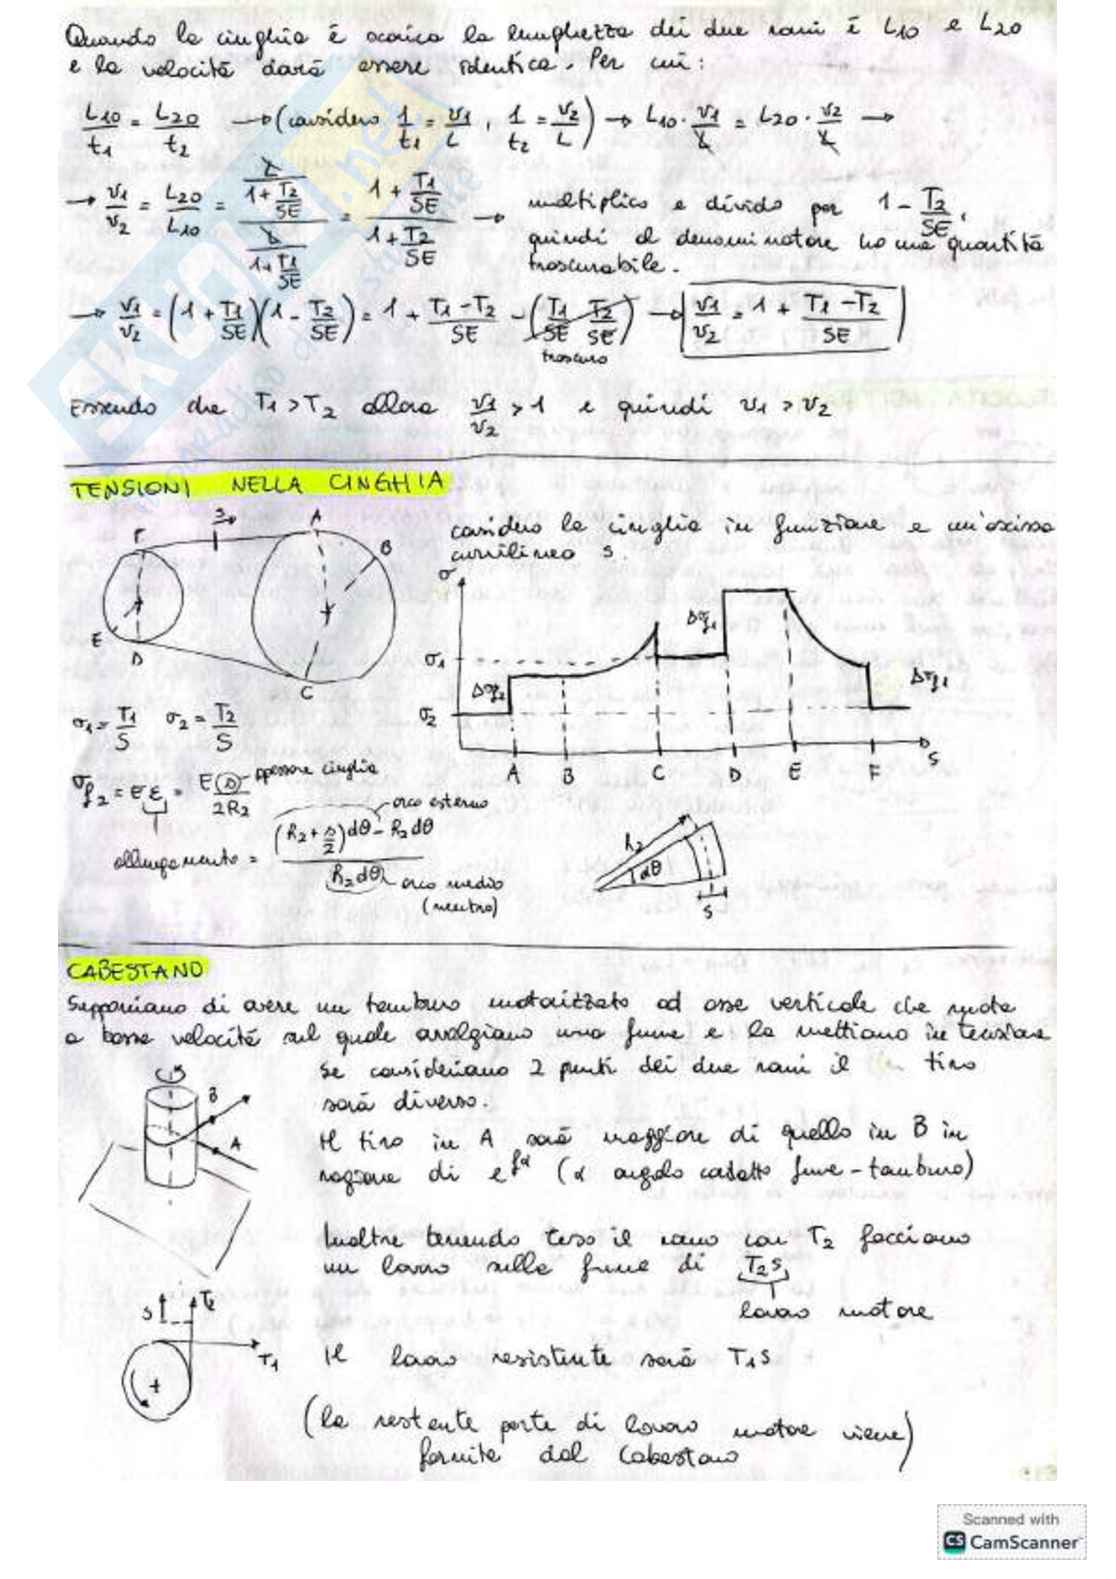 Quando la cinghia è scarica la lunghezza dei due rami è L10 e L20
e la velocità dovrà essere identica. Per cui:
L10/t1 = L20/t2 → (considero 1/t1 = v1/L , 1/t2 = v2/L) → L10 · v1/L = L20 · v2/L →
→ v1/v2 = L20/L10 = (L/(1+T2/SE))/(L/(1+T1/SE)) = (1+T1/SE)/(1+T2/SE) → moltiplico e divido per 1 - T2/SE,
quindi al denominatore ho una quantità
trascurabile.
→ v1/v2 = (1 + T1/SE)(1 - T2/SE) = 1 + (T1-T2)/SE - (T1/SE T2/SE) → v1/v2 = 1 + (T1-T2)/SE
trascuro
Essendo che T1 > T2 allora v1/v2 > 1 e quindi v1 > v2
TENSIONI NELLA CINGHIA
considero la cinghia in funzione e un'ascissa
curvilinea s.
s
F
A
B
E
D
C
σ
σ1
σ2
Δσf2
Δσf1
Δσf1
A B C D E F s
σ1 = T1/S σ2 = T2/S
σf2 = E ε = E(s)/2R2 - spessore cinghia
allungamento = ((R2 + s/2)dθ - R2dθ)/(R2dθ)
arco esterno
arco medio
(neutro)
R2
dθ
s
CABESTANO
Supponiamo di avere un tamburo motorizzato ad asse verticale che ruota
a bassa velocità sul quale avvolgiamo una fune e la mettiamo in tensione
Se consideriamo 2 punti dei due rami il tiro
sarà diverso.
B
A
Il tiro in A sarà maggiore di quello in B in
ragione di e^fα (α angolo contatto fune-tamburo)
Inoltre tenendo teso il ramo con T2 facciamo
un lavoro sulla fune di T2s
lavoro motore
s
T2
T1
Il lavoro resistente sarà T1s
(la restante parte di lavoro motore viene)
fornita dal cabestano
SKUOLA.net
Scanned with
CS CamScanner